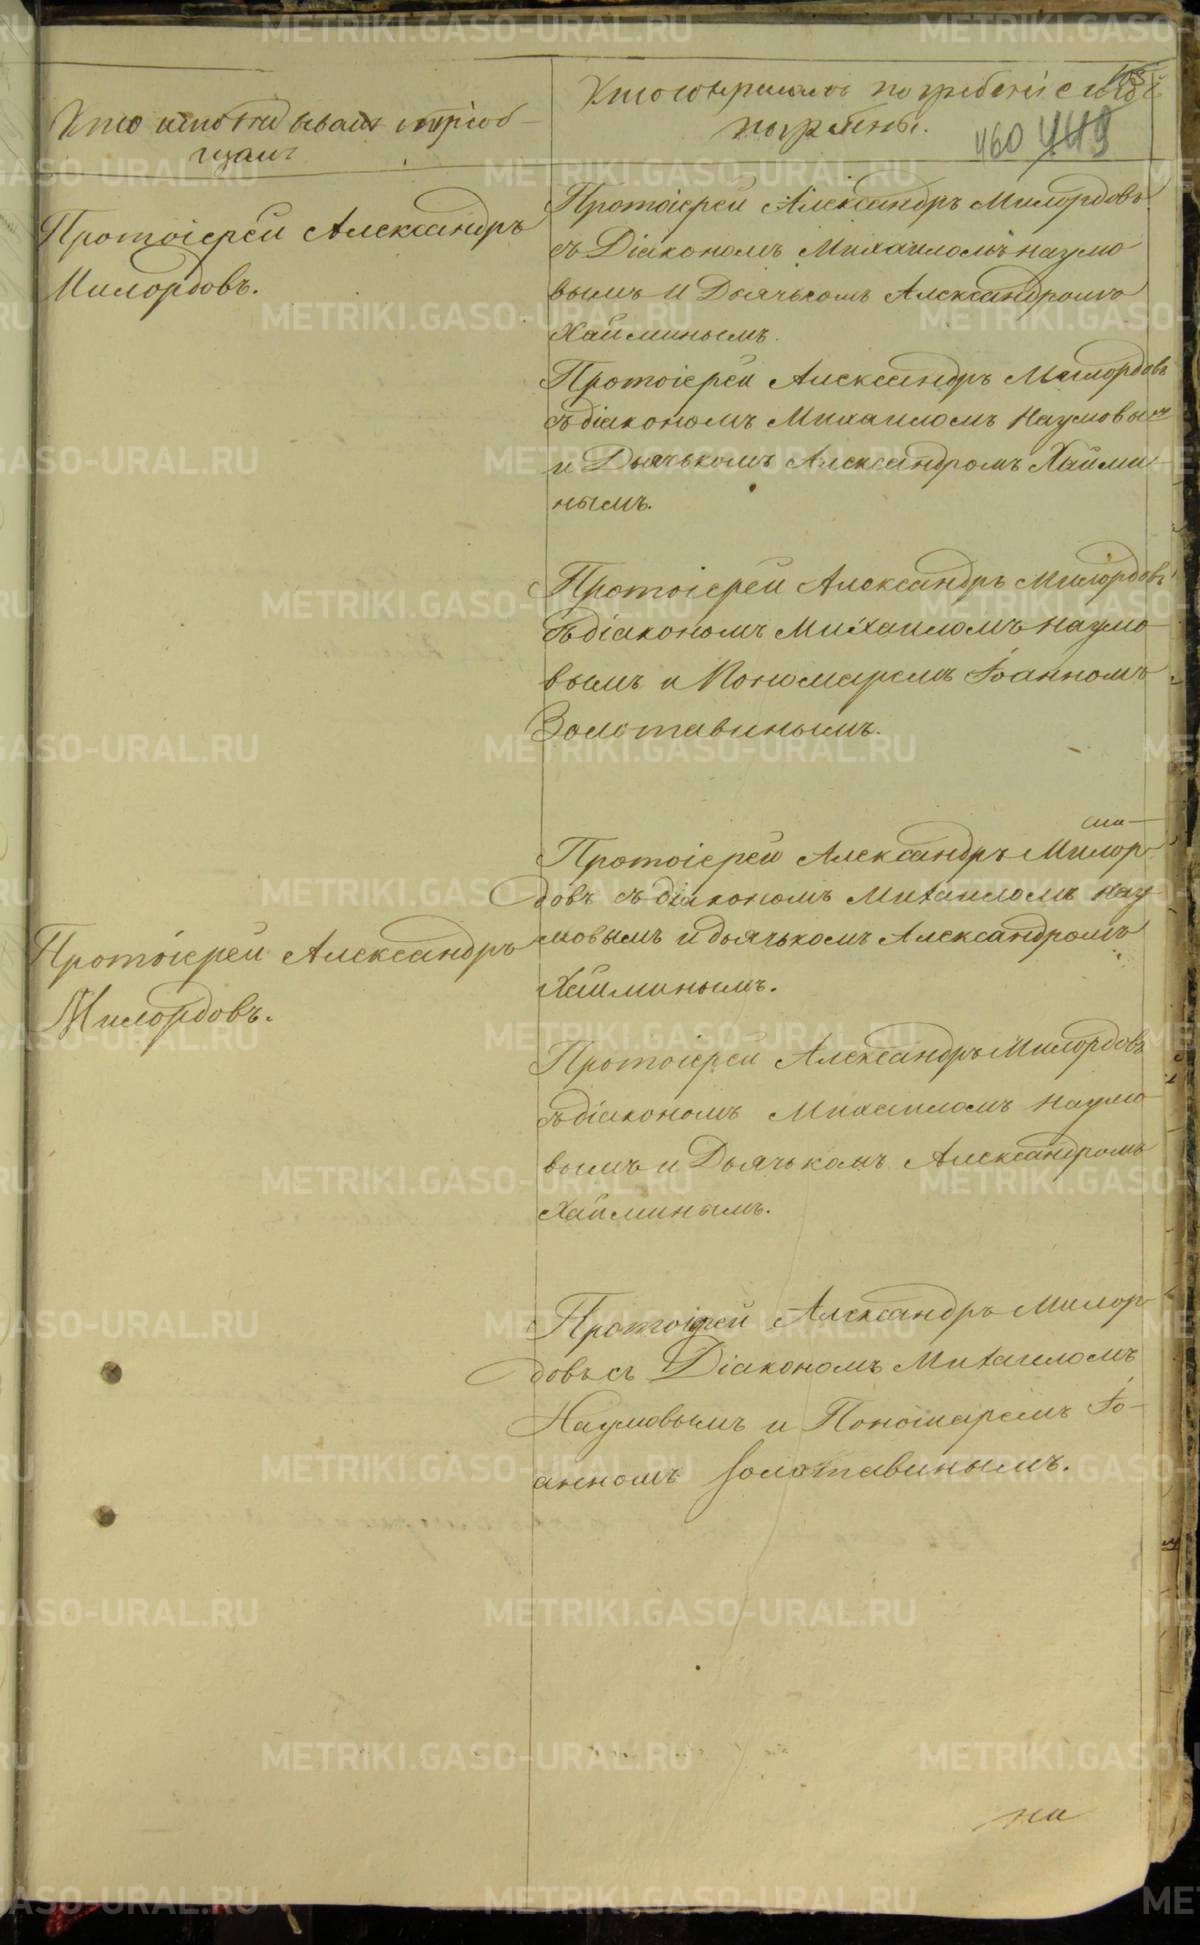 Кто исповѣдывалъ и пріоб-
щалъ
Кто совершалъ погребеніе и гдѣ
погребены.
460 449
Протоіерей Александръ
Милордовъ.
Протоіерей Александръ Милордовъ
съ Діакономъ Михаиломъ Наумо
вымъ и Дьячькомъ Александромъ
Хайминымъ.
Протоіерей Александръ Милордовъ
съ діакономъ Михаиломъ Наумовым
и Дьячькомъ Александромъ Хайми-
нымъ.
Протоіерей Александръ Милордовъ
съ діакономъ Михаиломъ Наумо-
вымъ и Пономаремъ Іоанномъ
Золотавинымъ.
Протоіерей Александръ Милор-
довъ съ діакономъ Михаиломъ Нау-
мовымъ и дьячькомъ Александромъ
Хайминымъ.
Протоіерей Александръ
Милордовъ.
Протоіерей Александръ Милордовъ
съ діакономъ Михаиломъ Наумо-
вымъ и Дьячькомъ Александромъ
Хайминымъ.
Протоіерей Александръ Милор-
довъ съ Діакономъ Михаиломъ
Наумовымъ и Пономаремъ Іо-
анномъ Золотавинымъ.
на
METRIKI.GASO-URAL.RU